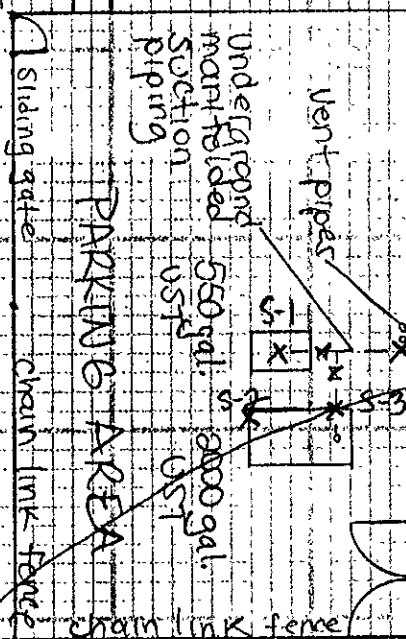 Vent pipes
Undergroynd
manifolded
Suction
piping
550 gal.
UST
2000 gal.
UST
S-1
S-2
S-3
PARKING AREA
Sliding gate
chain link fence
chain link fence